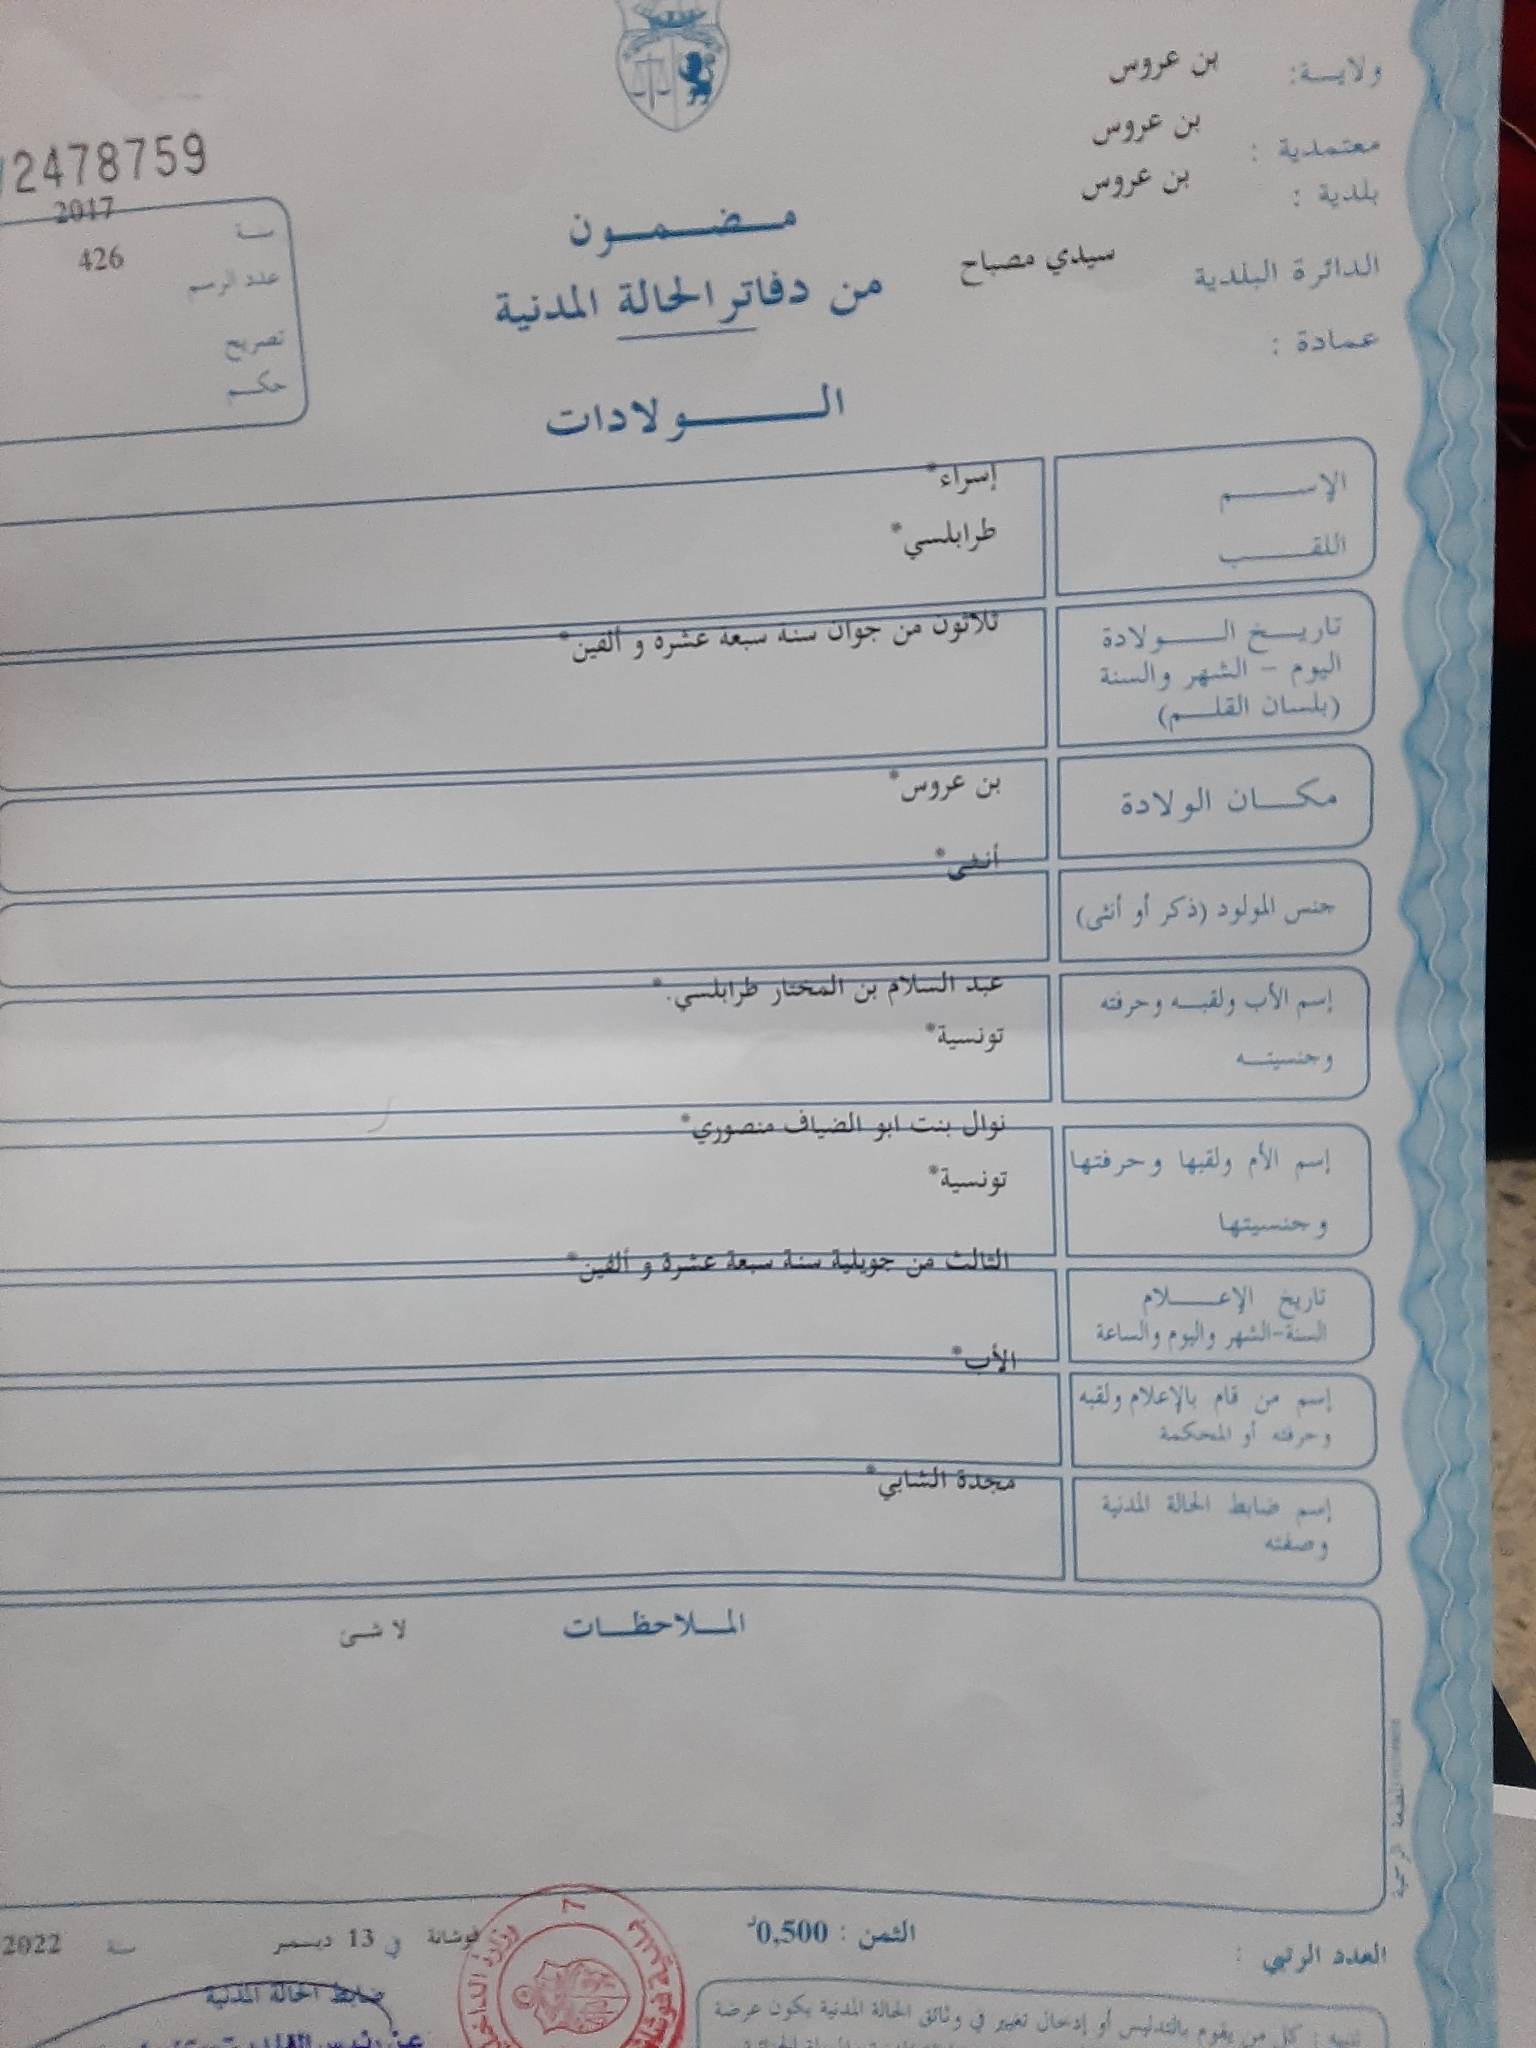 ولاية: بن عروس
معتمدية : بن عروس
بلدية : بن عروس
الدائرة البلدية سيدي مصباح
عمادة :
مضمون
من دفاتر الحالة المدنية
الولادات
2478759
سنة 2017
عدد الرسم 426
تصريح
حكم
الإسم إسراء*
اللقب طرابلسي*
تاريخ الولادة ثلاثون من جوان سنة سبعة عشرة و ألفين*
اليوم - الشهر والسنة
(بلسان القلم)
مكان الولادة بن عروس*
جنس المولود (ذكر أو أنثى) أنثى*
إسم الأب ولقبه وحرفته عبد السلام بن المختار طرابلسي.*
وجنسيته تونسية*
إسم الأم ولقبها وحرفتها نوال بنت ابو الضياف منصوري*
وجنسيتها تونسية*
تاريخ الإعلام الثالث من جويلية سنة سبعة عشرة و ألفين*
السنة-الشهر واليوم والساعة
إسم من قام بالإعلام ولقبه الأب*
وحرفته أو المحكمة
إسم ضابط الحالة المدنية مجدة الشابي*
وصفته
الملاحظات لا شئ
المطبعة الرسمية
العدد الرتبي :
الثمن : 0,500د
فوشانة في 13 ديسمبر سنة 2022
ضابط الحالة المدنية
وزارة الداخلية
7
تنبيه : كل من يقوم بالتدليس أو إدخال تغيير في وثائق الحالة المدنية يكون عرضة